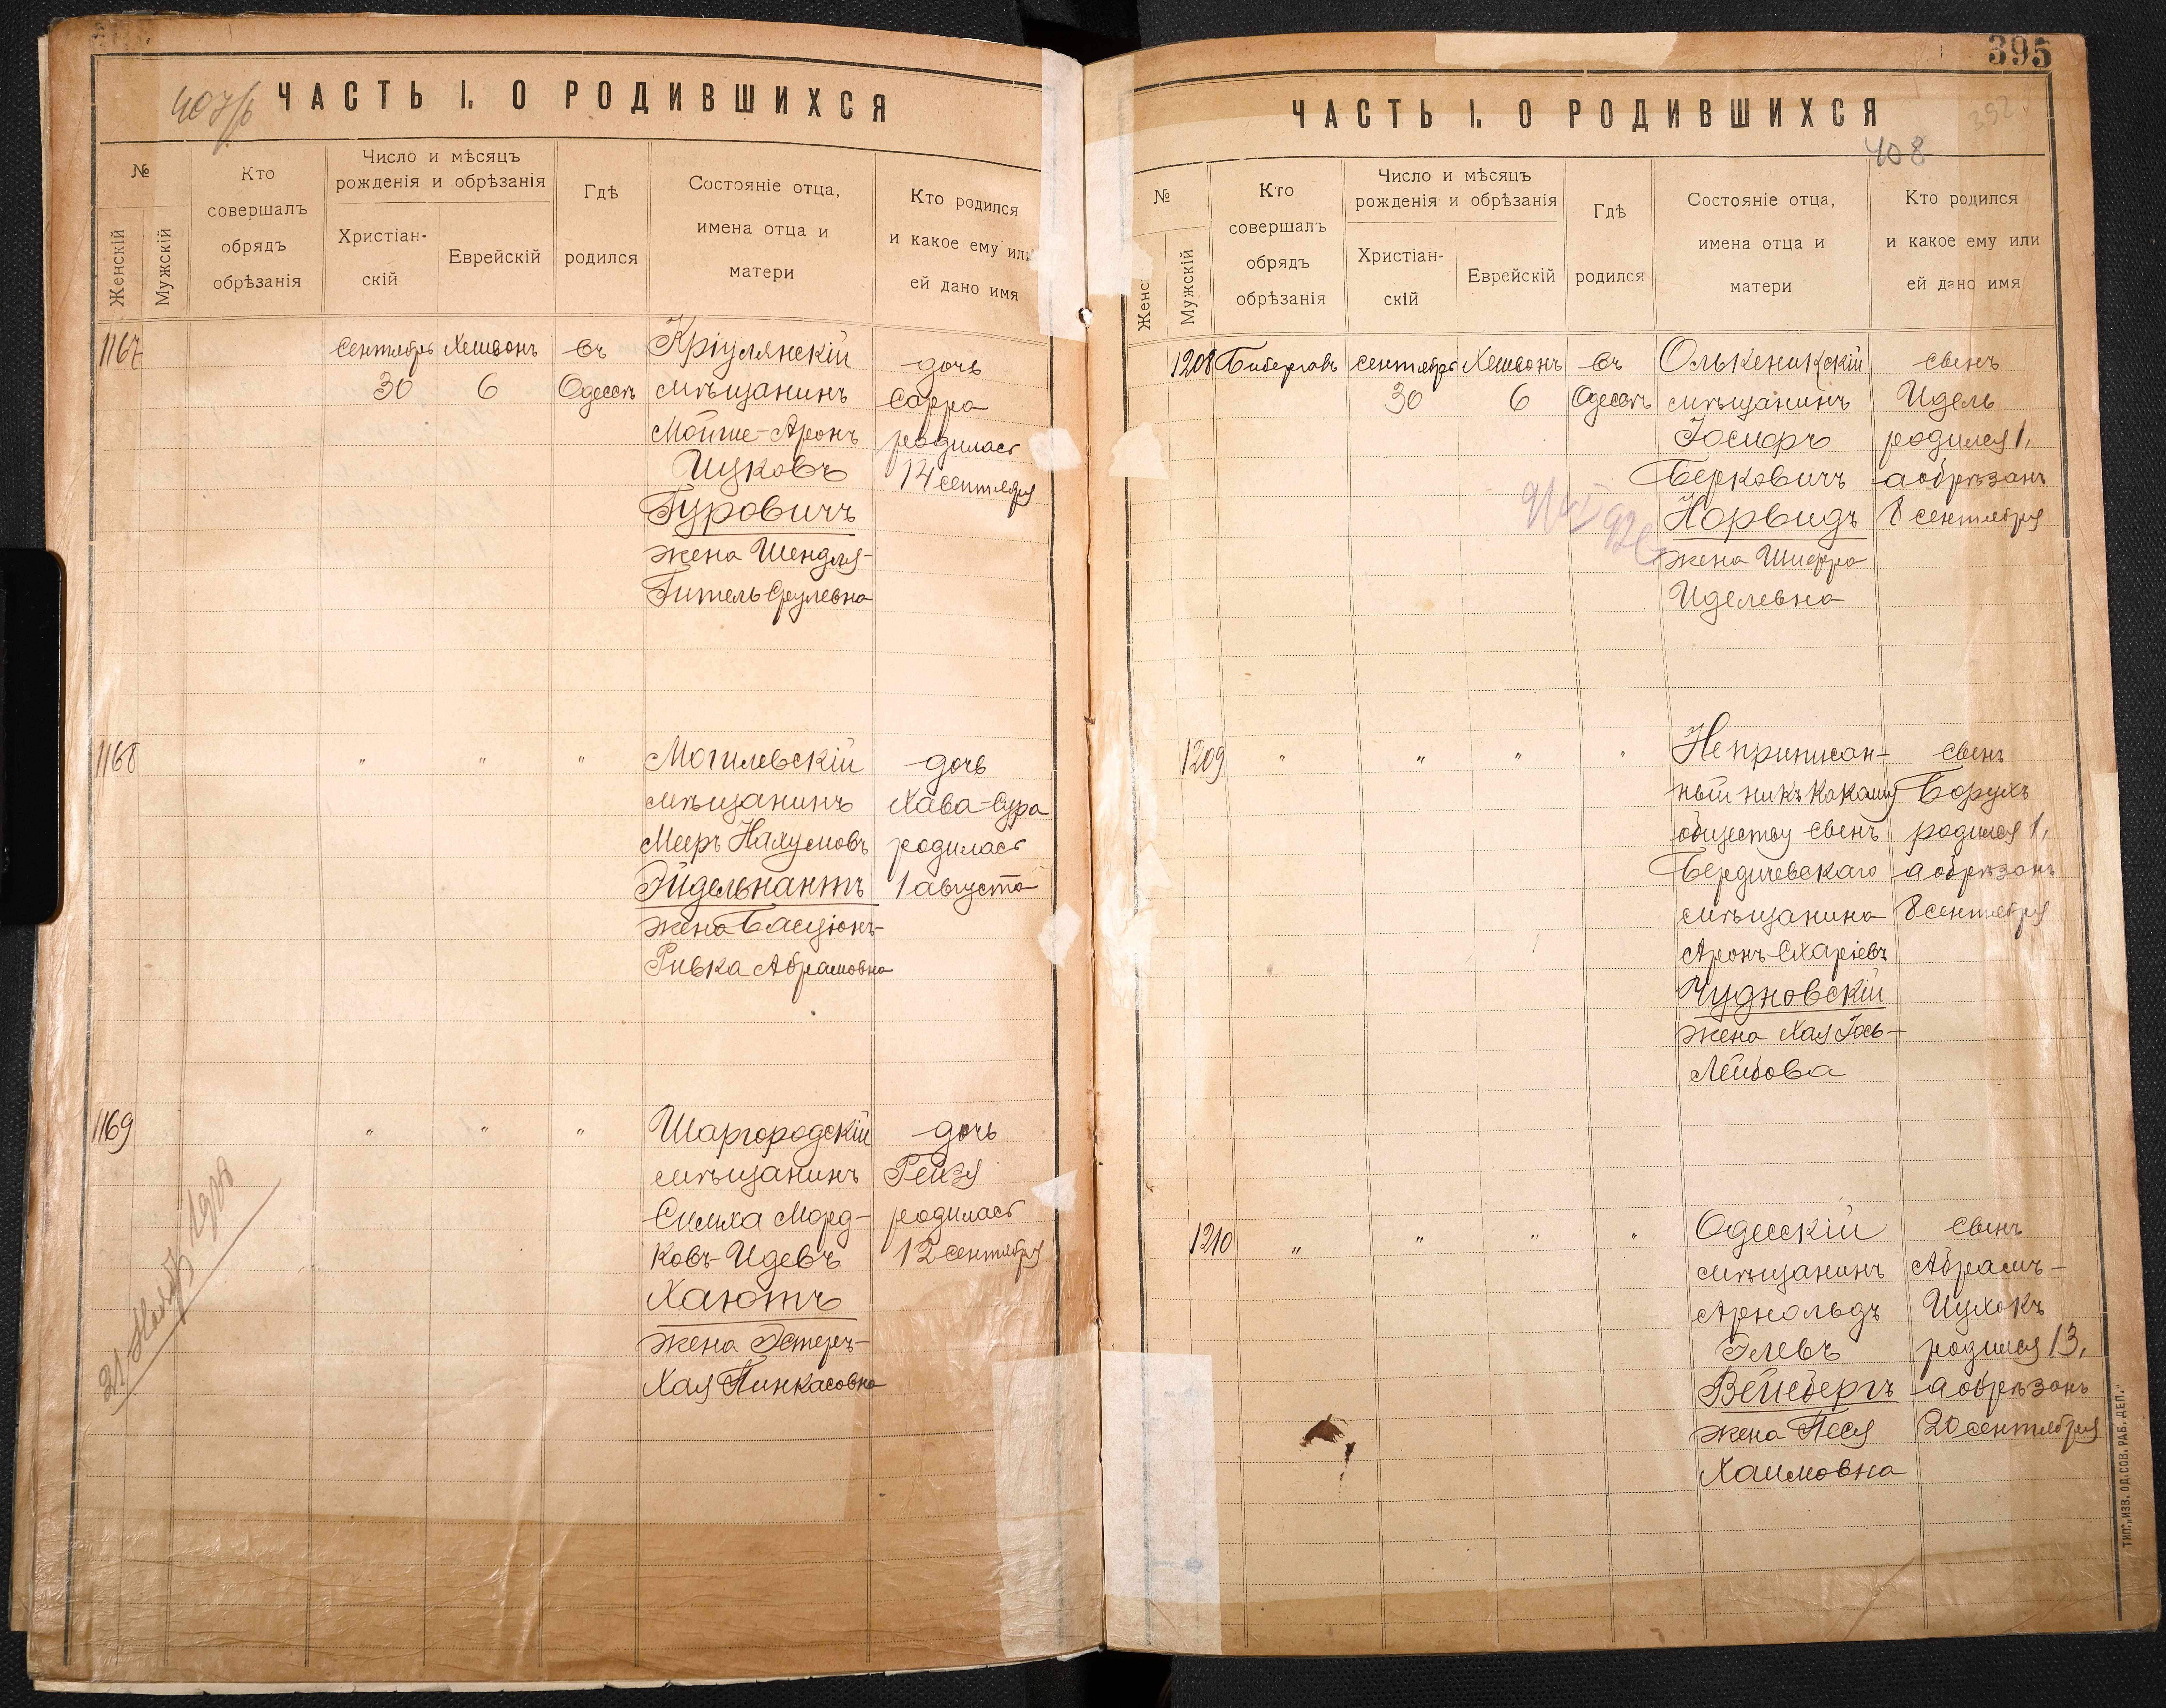 ЧАСТЬ I. О РОДИВШИХСЯ
№
Женскій
Мужскій
Кто
совершалъ
обрядъ
обрѣзанія
Число и мѣсяцъ
рожденія и обрѣзанія
Христіан-
скій
Еврейскій
Гдѣ
родился
Состояніе отца,
имена отца и
матери
Кто родился
и какое ему или
ей дано имя
1167
Сентябрь Хешвонъ въ
30 6 Одессѣ
Кріулянскій
мѣщанинъ
Мойше-Аронъ
Ицковъ
Гуровичъ
жена Шендля-
Гитель Срулевна
дочь
Сарра
родилась
14 сентября
1168
" " "
Могилевскій
мѣщанинъ
Мееръ Нахумовъ
Эйдельнантъ
жена Басціонъ-
Ривка Абрамовна
дочь
Хава-Сура
родилась
1 августа
1169
" " "
Шаргородскій
мѣщанинъ
Симха Морд-
ковъ-Идевъ
Хаютъ
жена Эстеръ-
Хая Пинкасовна
дочь
Рейзя
родилась
12 сентября
395
ЧАСТЬ I. О РОДИВШИХСЯ
408
№
Женс
Мужскій
Кто
совершалъ
обрядъ
обрѣзанія
Число и мѣсяцъ
рожденія и обрѣзанія
Христіан-
скій
Еврейскій
Гдѣ
родился
Состояніе отца,
имена отца и
матери
Кто родился
и какое ему или
ей дано имя
1208
сентябрь Хешвонъ въ
30 6 Одессѣ
Олькеникскій
мѣщанинъ
Іосифъ
Берковичъ
Норвидъ
жена Шифра
Иделевна
сынъ
Идель
родился 1,
а обрѣзанъ
8 сентября
1209
" " " "
Неприписан-
ный ни къ какому
обществу сынъ
Бердичевскаго
мѣщанина
Аронъ Схаріевъ
Чудновскій
жена Хая Іось-
Лейбова
сынъ
Борухъ
родился 1,
а обрѣзанъ
8 сентября
1210
" " " "
Одесскій
мѣщанинъ
Арнольдъ
Элевъ
Вейсбергъ
жена Песя
Хаимовна
сынъ
Абрамъ-
Ицхокъ
родился 13,
а обрѣзанъ
20 сентября
ТИП. „ИЗВ. ОД. СОВ. РАБ. ДЕП."